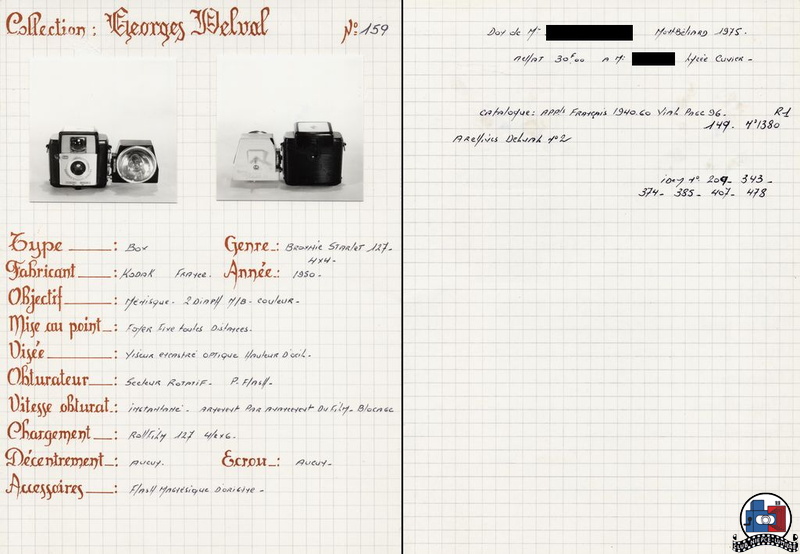 Collection : Georges Delval
N°: 159
Type : Box
Genre : Brownie Starlet 127-
4x4-
Fabricant : Kodak France.
Année : 1950-
Objectif : Ménisque. 2 Diaph N/B- couleur-
Mise au point : Foyer Fixe toutes Distances.
Visée : Viseur encastré optique Hauteur D'oeil.
Obturateur : Secteur Rotatif- P. Flash-
Vitesse obturat : instantané- armement Par avancement Du Film- Blocage
Chargement : Rollfilm 127 4x6.
Décentrement : Aucun.
Ecrou : Aucun-
Accessoires : Flash Magnésique Dorigine-
Don de Mr Montbéliard 1975.
Achat 30F00 A Mr Lycée Cuvier-
Catalogue: APPls Français 1940.60 Vial Page 96- R-1
149. N°1380
Archives Delval n°2
idem n° 209- 343-
374- 385- 407- 478